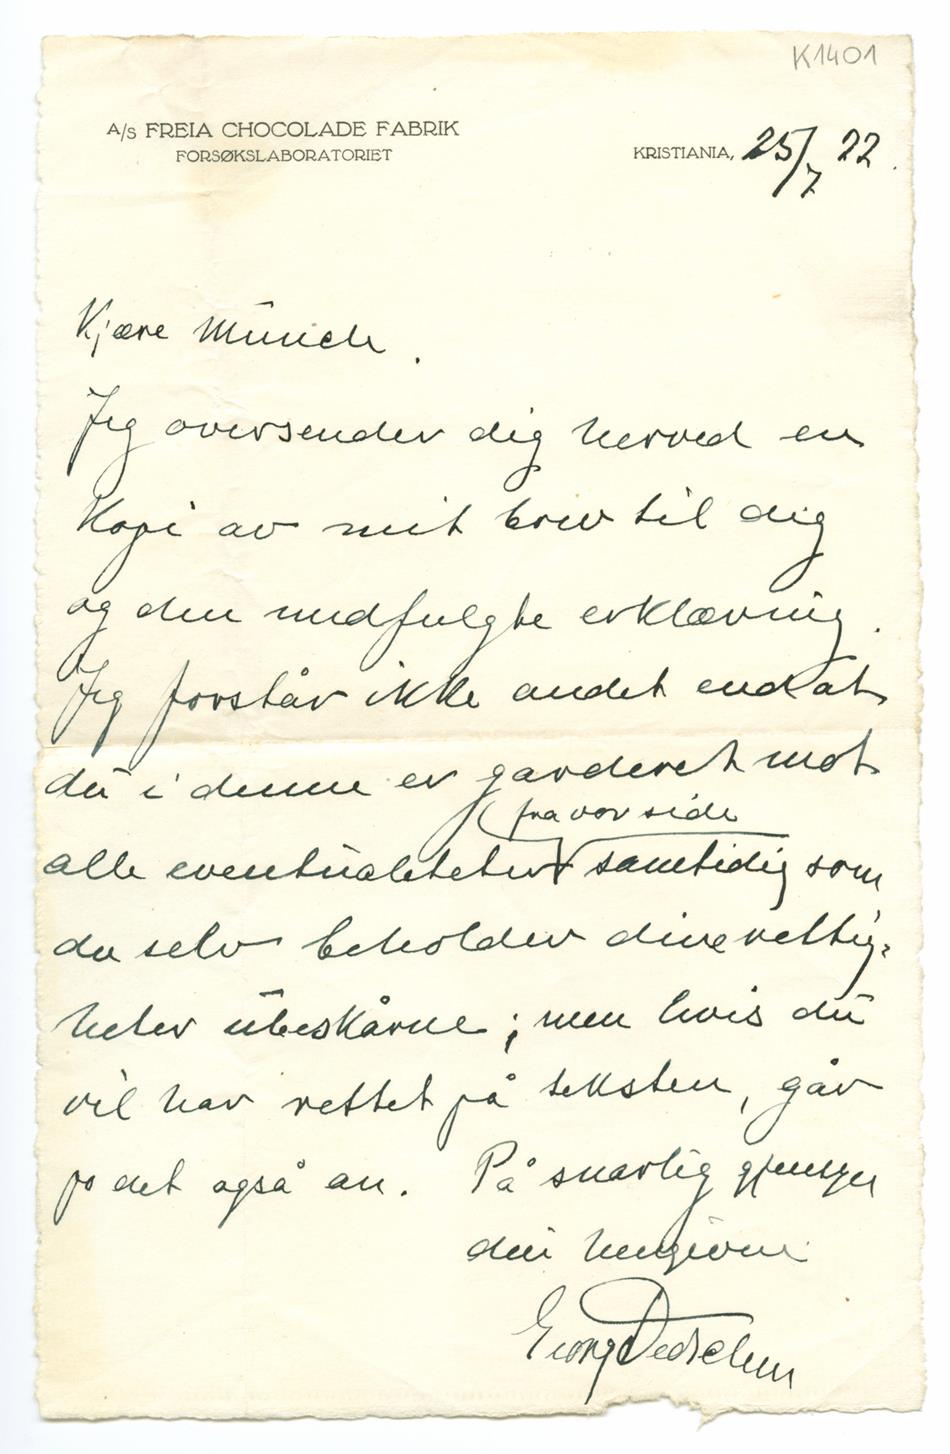 K1401
A/S FREIA CHOCOLADE FABRIK
FORSØKSLABORATORIET
KRISTIANIA, 25/7 22.
Kjære Munch.
Jeg oversender dig herved en
Kopi av mit brev til dig
og den medfulgte erklæring.
Jeg forstår ikke andet end at
du i denne er garderet mot
fra vor side
alle eventualiteter samtidig som
du selv beholder dine rettig-
heter ubeskårne; men hvis du
vil har rettet på teksten, går
jo det også an. På snarlig gjensyn
din hengivne
Georg